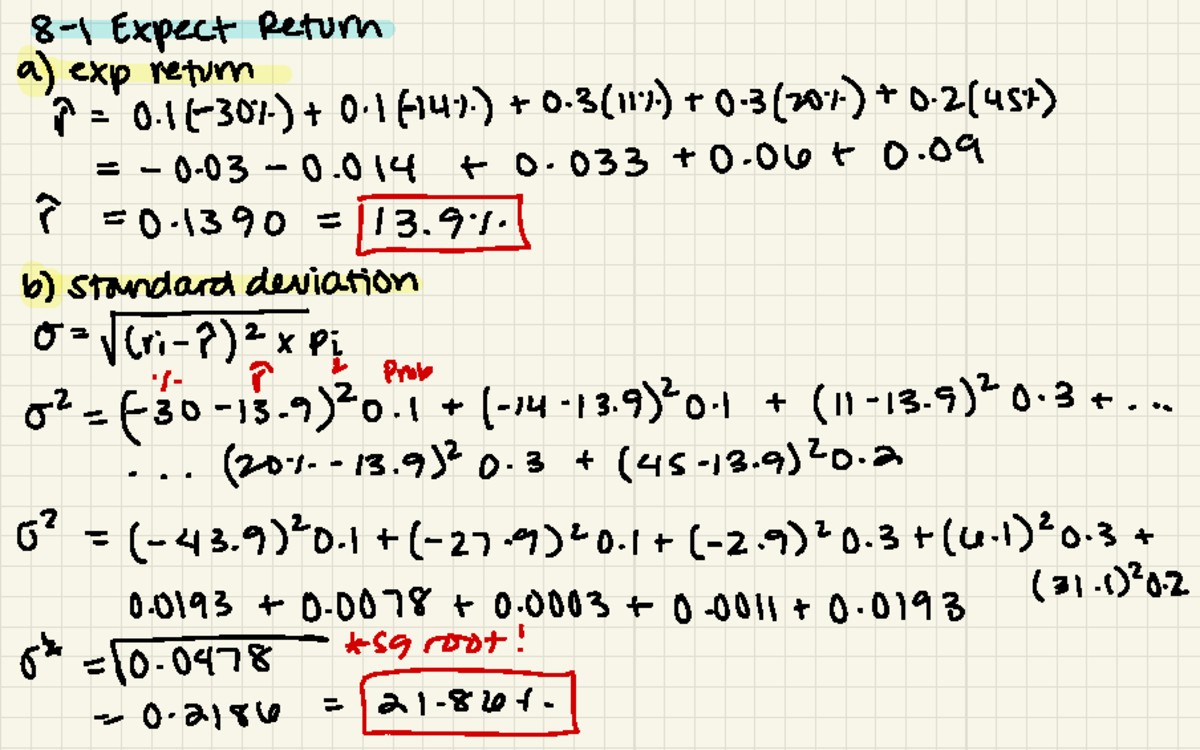 8-1 Expect Return
a) exp return
r̂ = 0.1(-30%) + 0.1(-14%) + 0.3(11%) + 0.3(20%) + 0.2(45%)
= - 0.03 - 0.014 + 0.033 + 0.06 + 0.09
r̂ = 0.1390 = 13.9%
b) standard deviation
σ = √(ri - r̂)² × Pi
% r̂ 2 Prob
σ² = (-30 - 13.9)² 0.1 + (-14 - 13.9)² 0.1 + (11 - 13.9)² 0.3 + ...
... (20% - 13.9)² 0.3 + (45 - 13.9)² 0.2
σ² = (-43.9)² 0.1 + (-27.9)² 0.1 + (-2.9)² 0.3 + (6.1)² 0.3 +
(31.1)² 0.2
0.0193 + 0.0078 + 0.0003 + 0.0011 + 0.0193
*sq root!
σ = √0.0478
= 0.2186 = 21.86%